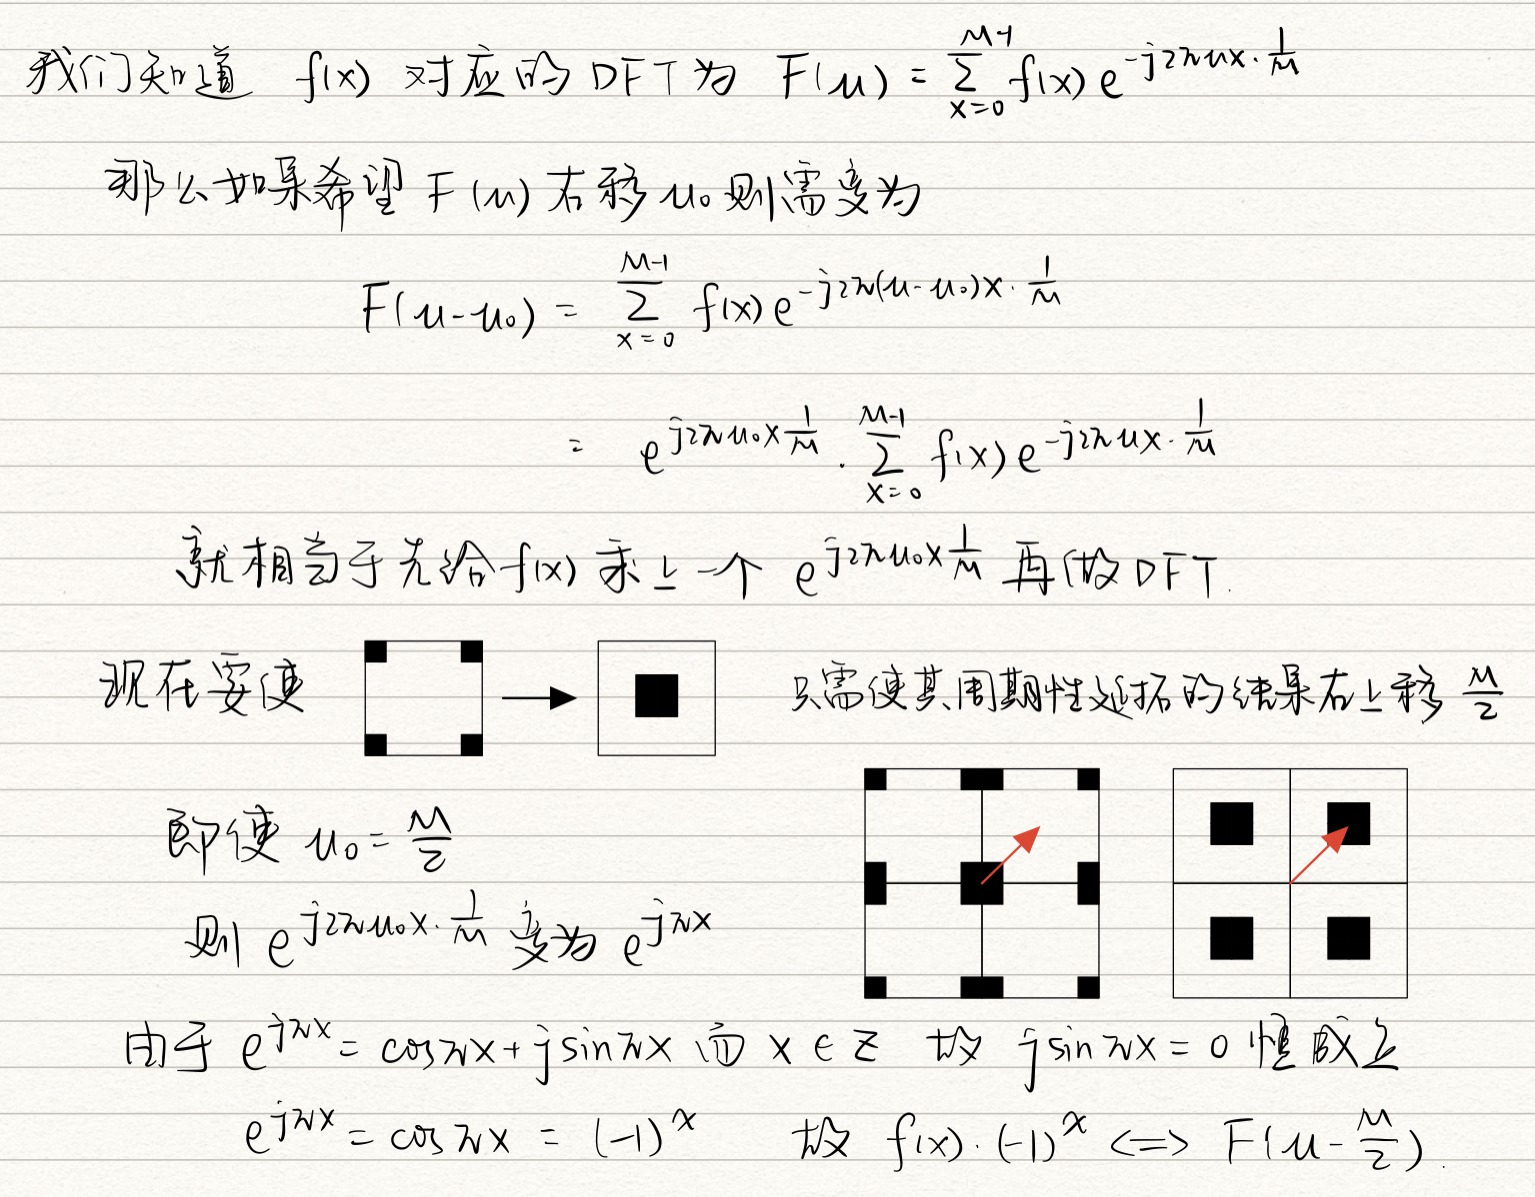 我们知道 f(x) 对应的 DFT 为 F(u) = \sum_{x=0}^{M-1} f(x) e^{-j2πux·\frac{1}{M}}
那么如果希望 F(u) 右移 u₀ 则需变为
F(u-u₀) = \sum_{x=0}^{M-1} f(x) e^{-j2π(u-u₀)x·\frac{1}{M}}
= e^{j2πu₀x\frac{1}{M}} · \sum_{x=0}^{M-1} f(x) e^{-j2πux·\frac{1}{M}}
就相当于先给 f(x) 乘上一个 e^{j2πu₀x\frac{1}{M}} 再做 DFT.
现在要使 → 只需使其周期性延拓的结果右上移 \frac{M}{2}
即使 u₀ = \frac{M}{2}
则 e^{j2πu₀x·\frac{1}{M}} 变为 e^{jπx}
由于 e^{jπx} = cosπx + jsinπx 而 x ∈ Z 故 jsinπx = 0 恒成立
e^{jπx} = cosπx = (-1)^x 故 f(x)·(-1)^x <=> F(u-\frac{M}{2}).